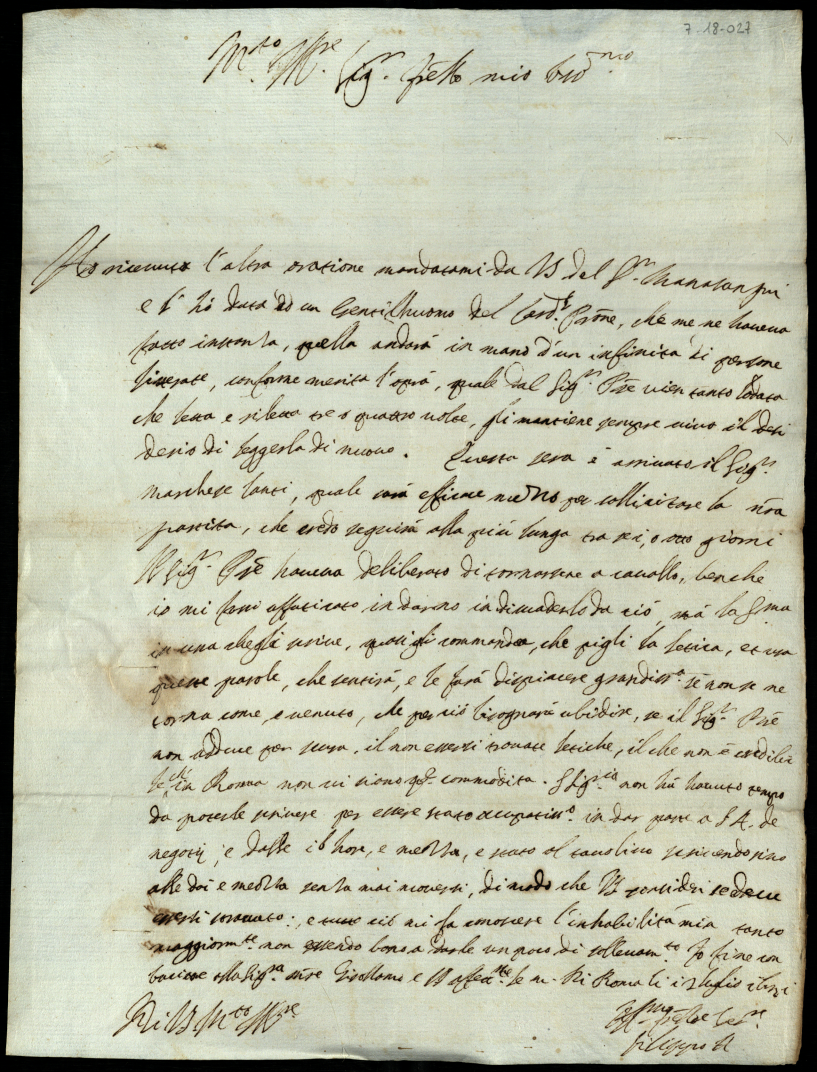 7-18-027
M.to Ill.re Sig.r frello mio
Ho ricevuto l'altra oratione mandatami da VS del S.r
e l'hò data ad un Gentilhuomo del Card.le che me ne haveva
fatto instanza, quella andará in mano d'un infinitá di persone
litterate, conforme merita l'opra, quale dal Sig.r Pre vien tanto lodata
che letta e riletta tre o quattro volte, gli mantiene sempre vivo il desi
derio di leggerla di nuovo. Questa sera è arrivato il Sig.r
Marchese lanti, quale sará efficace mezzo per sollicitare la nra
partita, che credo seguirá alla piú lunga tra sei, o otto giorni
Il Sig.r Pre haveva deliberato di tornarsene a cavallo, benche
io mi fossi affaticato indarno in dissuaderlo da ció, má la
in una che gli scrive, quasi gli commanda, che pigli la letica, et usa
queste parole, che sentirá, e le fará dispiacere grandiss.o se non se ne
torna come, è venuto, che per ció bisognará ubidire, se il Sig.r Pre
non adduce per scusa, il non essersi trovate letiche, il che non è credibi
le che in Roma non vi siano q.te commodita. non há havuto tempo
da poterle scrivere per essere stato occupatiss.o in dar parte a S.A. de
negotij, e dalle hore, e mezza, e stato al tavolino scrivendo sino
alle doi e mezza senza mai moversi, di modo che VS consideri se deve
essersi straccato: e tutto ció mi fa conoscere l'inhabilitá mia tanto
maggiorm.te non essendo bono a darle un poco di sollevam.to Io fine con
baciare alla Sig.ra Girollamo e VS affett.te le m. Di Roma li Luglio
Di VS M.to Ill.re
Aff.mo
filippo